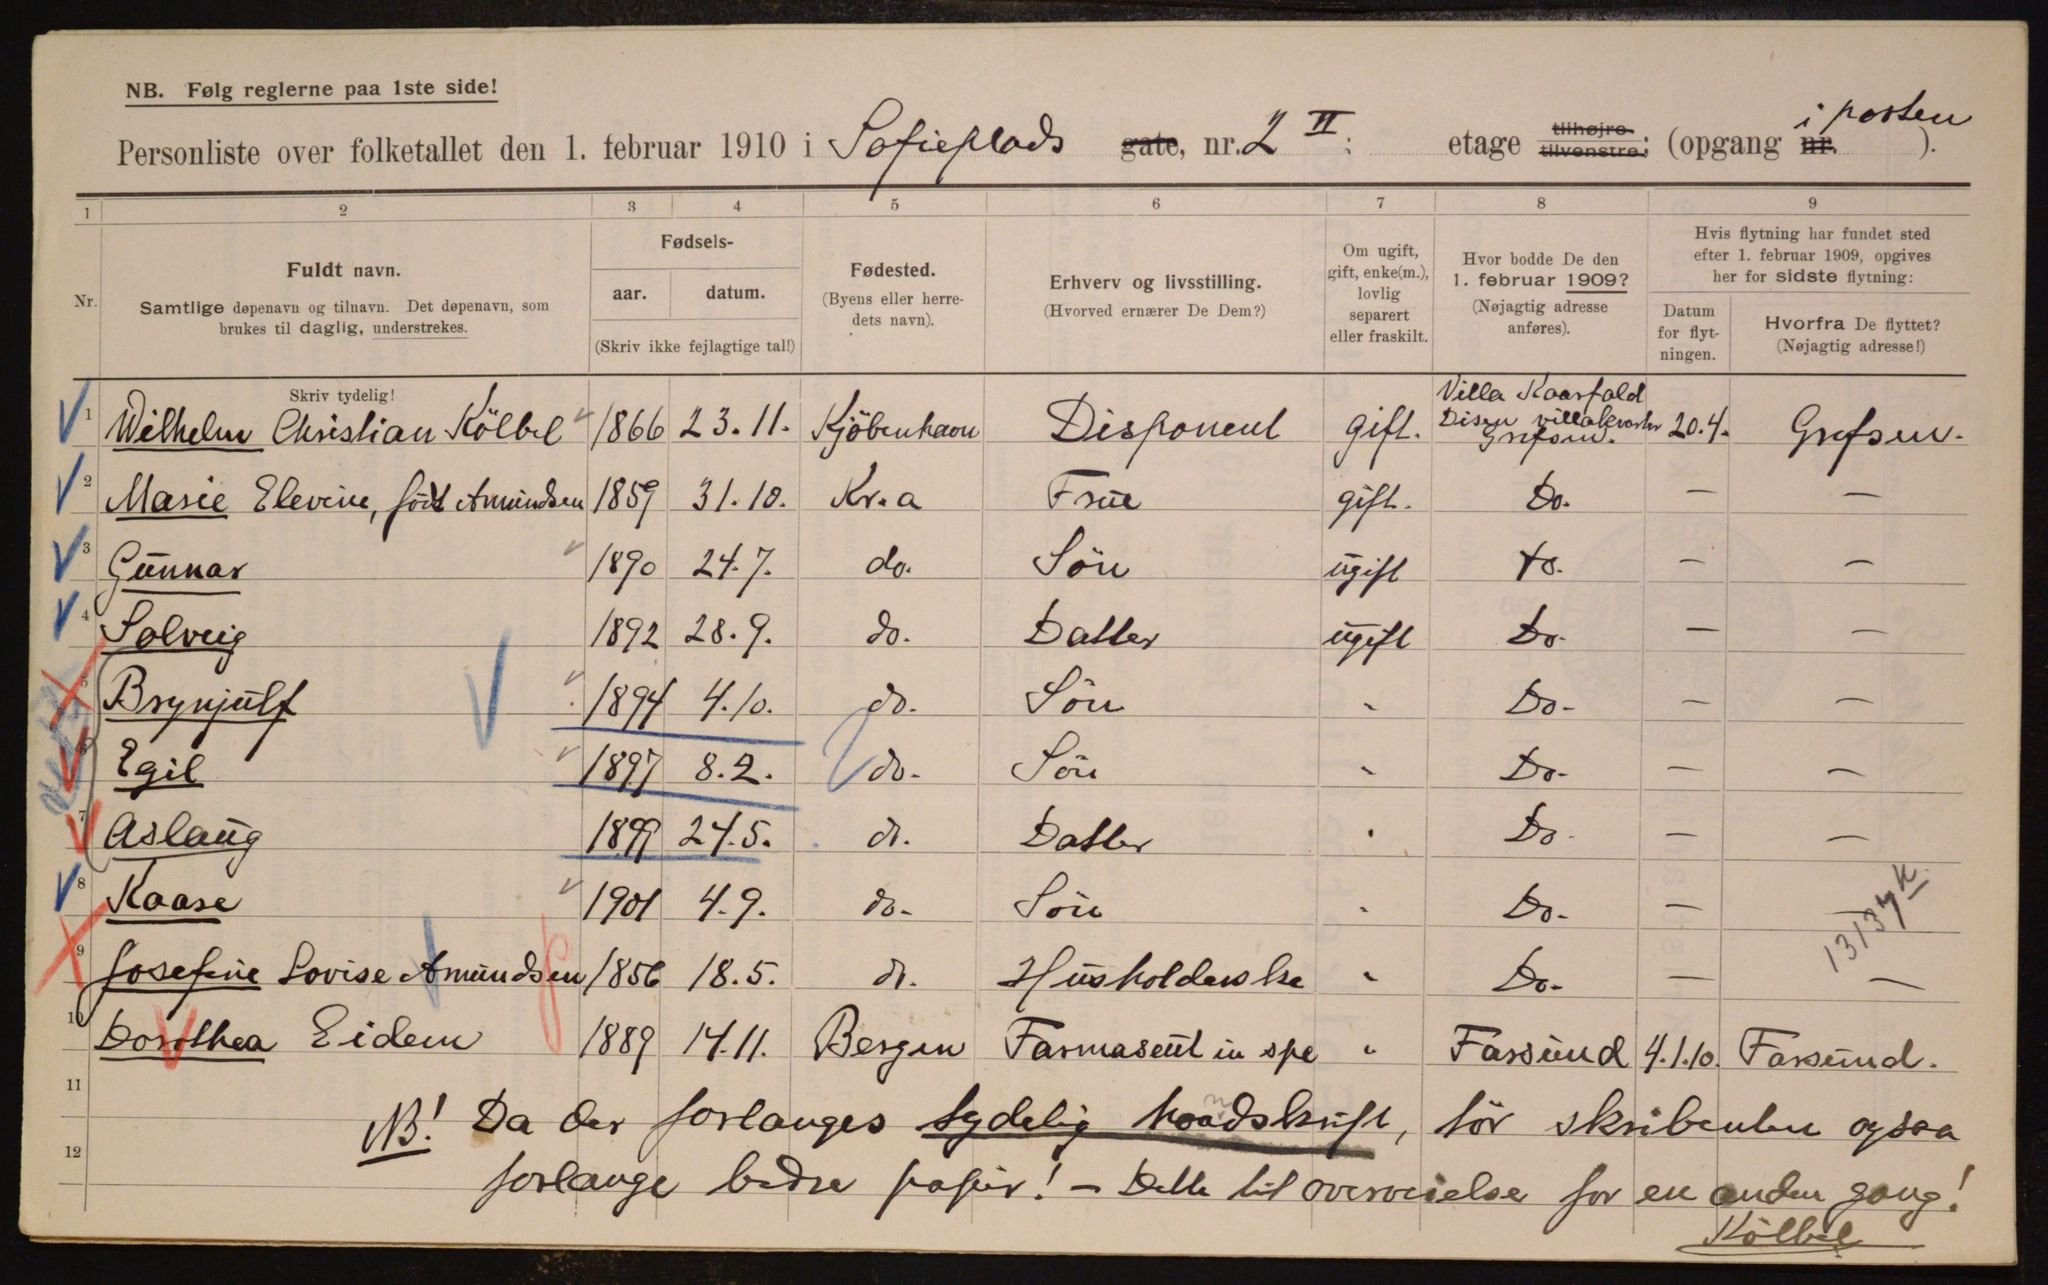 NB. Følg reglerne paa 1ste side!
i porten
Personliste over folketallet den 1. februar 1910 i Sofieplads gate, nr. 2 II: etage tilhøjre tilvenstre; (opgang nr. ).
1 2 3 4 5 6 7 8 9
Nr.
Fuldt navn.
Samtlige døpenavn og tilnavn. Det døpenavn, som
brukes til daglig, understrekes.
Skriv tydelig!
Fødsels-
aar. datum.
(Skriv ikke fejlagtige tal!)
Fødested.
(Byens eller herre-
dets navn).
Erhverv og livsstilling.
(Hvorved ernærer De Dem?)
Om ugift,
gift, enke(m.),
lovlig
separert
eller fraskilt.
Hvor bodde De den
1. februar 1909?
(Nøjagtig adresse
anføres).
Hvis flytning har fundet sted
efter 1. februar 1909, opgives
her for sidste flytning:
Datum
for flyt-
ningen.
Hvorfra De flyttet?
(Nøjagtig adresse!)
1 Wilhelm Christian Kölbel 1866 23.11. Kjöbenhavn Disponent gift. Villa Kaarfald Disen villakvarter Grefsen. 20.4. Grefsen.
2 Marie Elevine, född Amundsen 1859 31.10. Kr.a Frue gift. Do. — —
3 Gunnar 1890 24.7. do. Sön ugift do. — —
4 Solveig 1892 28.9. do. Datter ugift Do. — —
5 Brynjulf 1894 4.10. do. Sön " Do. — —
6 Egil 1897 8.2. do. Sön " Do. — —
7 Aslaug 1899 24.5. do. Datter " Do. — —
8 Kaare 1901 4.9. do. Sön " Do. — —
9 Josefine Lovise Amundsen 1856 18.5. do. Husholderske " Do. — —
10 Dorothea Eidem 1889 14.11. Bergen Farmaseut in spe " Farsund 4.1.10. Farsund.
11 NB! Da der forlanges tydelig haandskrift, tör skribenten ogsaa
12 forlange bedre papir! — Dette til overveielse for en anden gang!
Kölbel